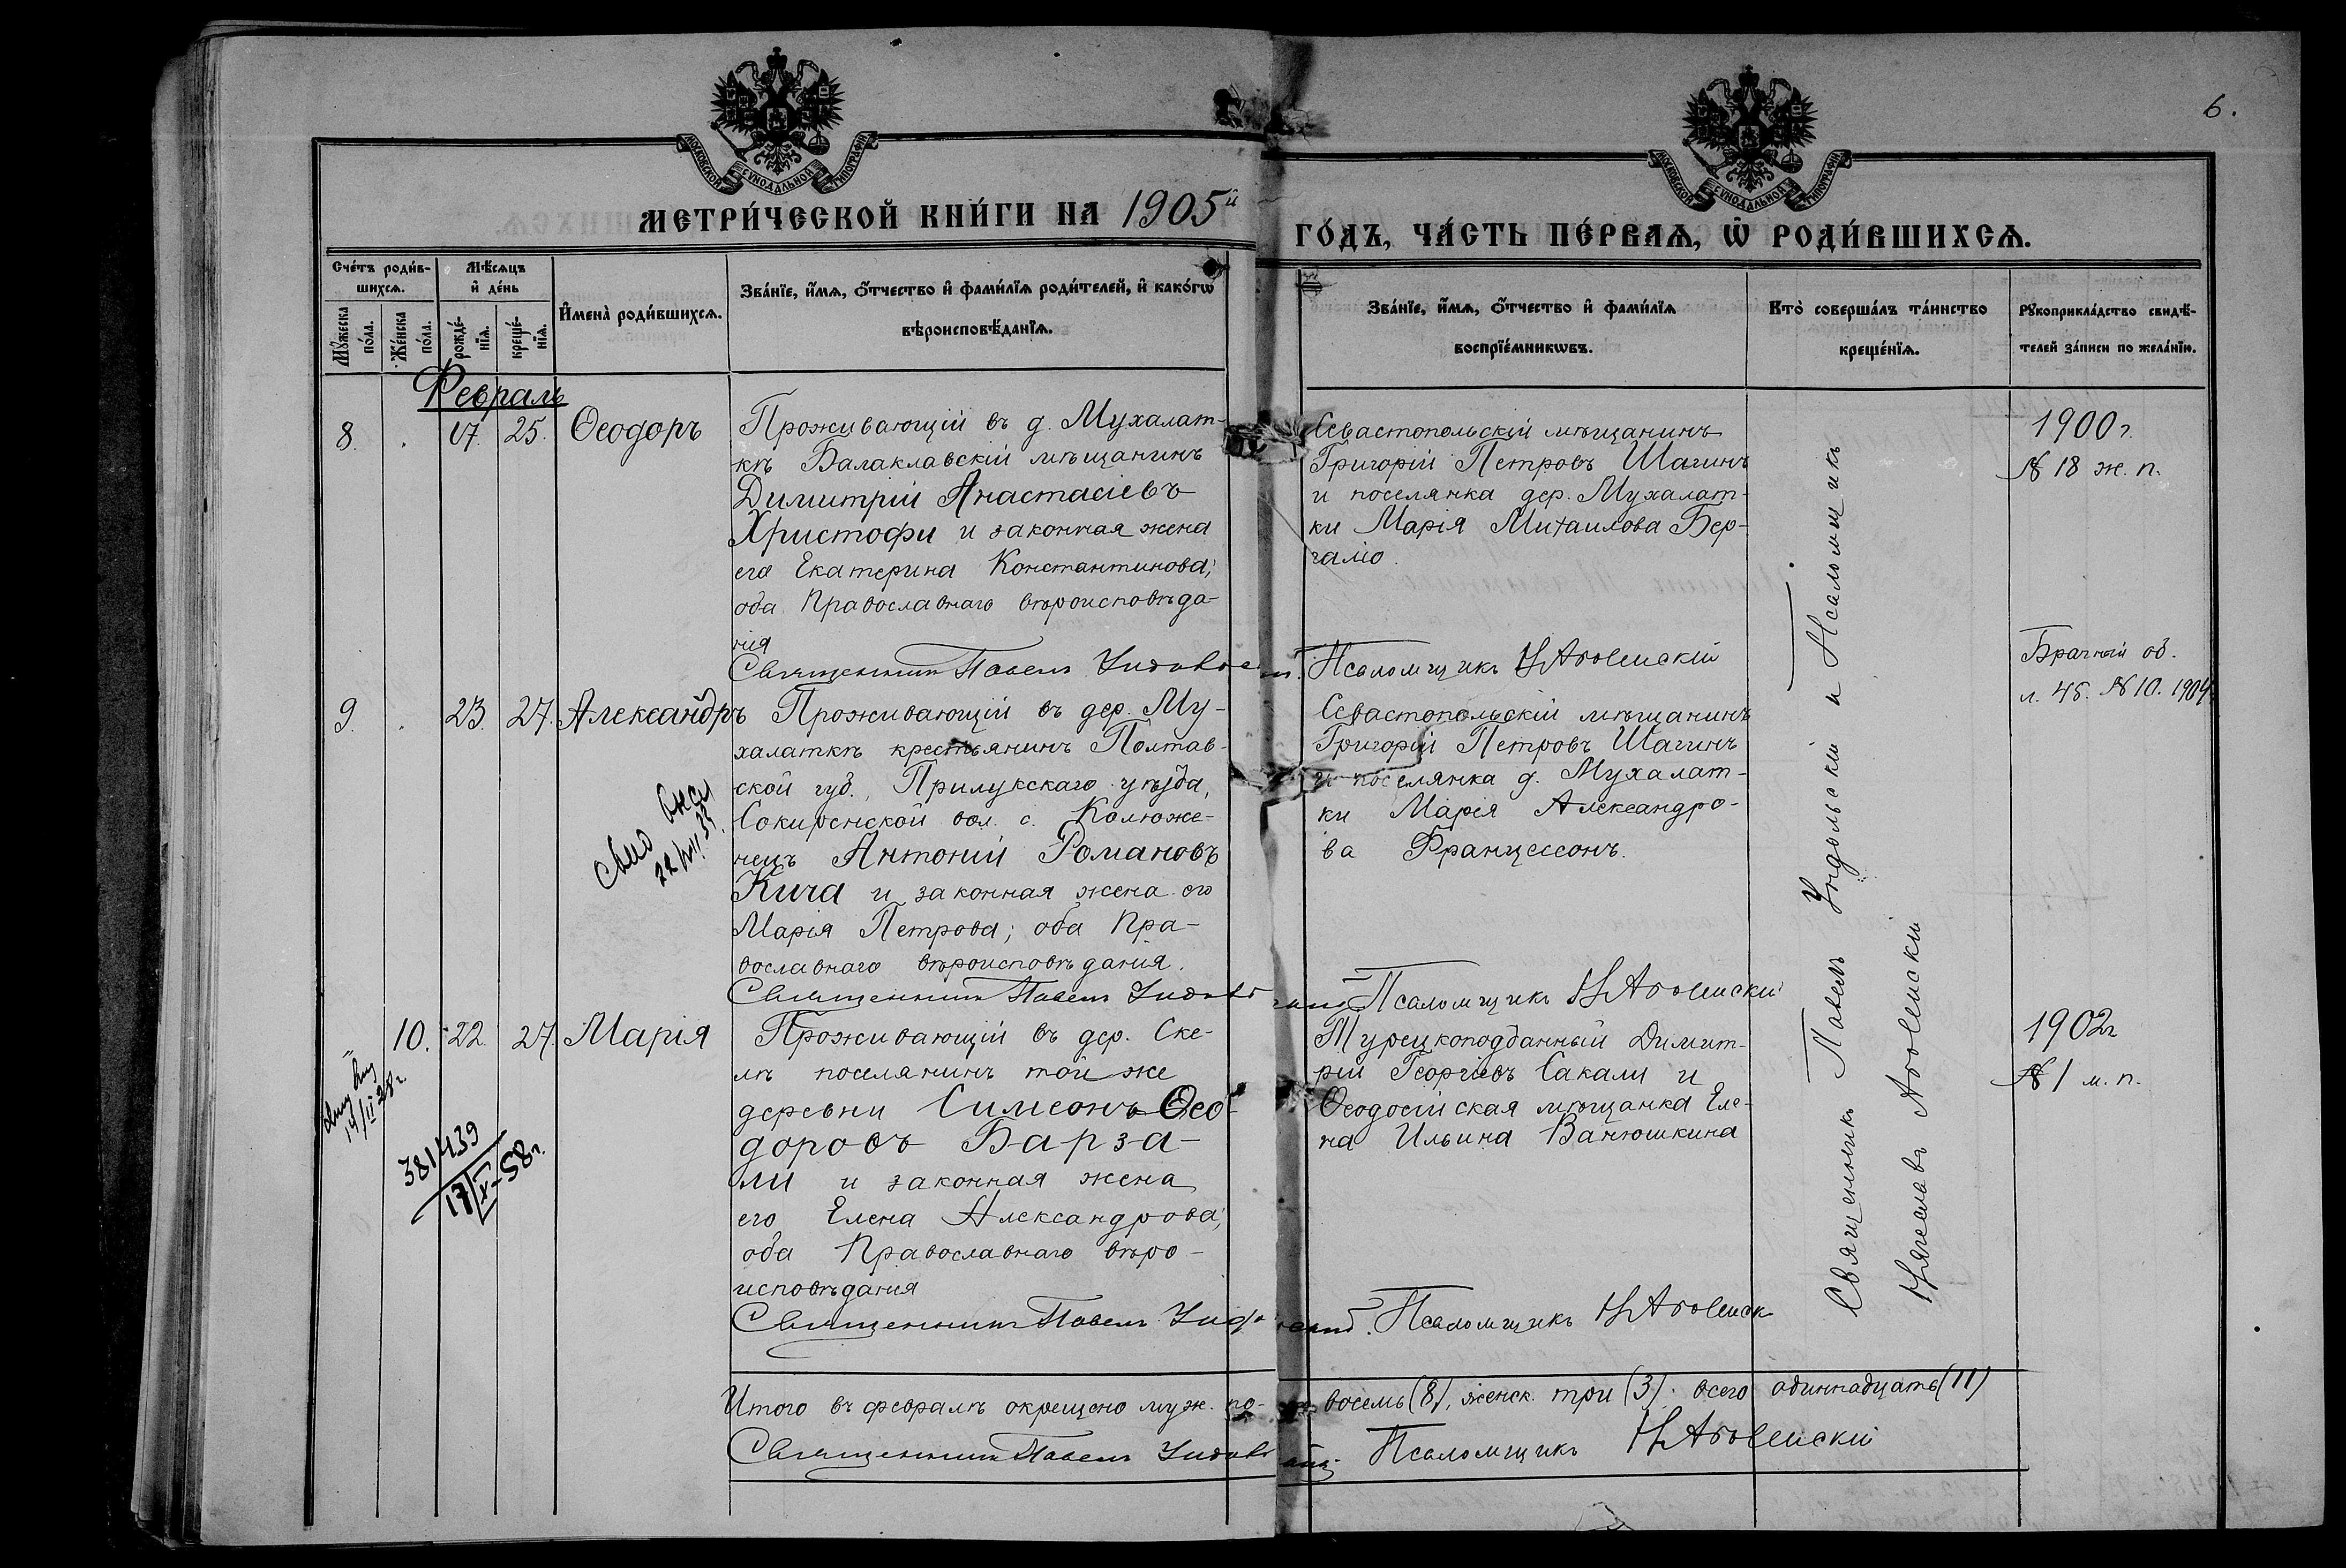 6.
МОСКОВСКОЙ СѴНОДАЛЬНОЙ ТИПОГРАФІИ
МОСКОВСКОЙ СѴНОДАЛЬНОЙ ТИПОГРАФІИ
МЕТРИ́ЧЕСКОЙ КНИ́ГИ НА 1905й
ГО́ДЪ, ЧА́СТЬ ПЕ́РВАѦ, Ѡ҆ РОДИ́ВШИХСѦ.
Сче́тъ роди́в-
шихсѧ.
Мꙋ́жеска по́ла.
Же́нска по́ла.
Мѣ́сѧцъ
и҆ де́нь
рожде́-нїѧ.
креще́-нїѧ.
И҆мена̀ роди́вшихсѧ.
Зва́нїе, и҆́мѧ, ѻ҆́тчество и҆ фами́лїѧ роди́телей, и҆ како́гѡ
вѣроисповѣ́данїѧ.
Зва́нїе, и҆́мѧ, ѻ҆́тчество и҆ фами́лїѧ
воспрїе́мникѡвъ.
Кто̀ соверша́лъ та́инство
креще́нїѧ.
Рꙋкоприкла́дство свидѣ́-
телей за́писи по жела́нїю.
Февраль
8. 17. 25. Ѳеодоръ
Проживающій въ д. Мухалат-
кѣ Балаклавскій мѣщанинъ
Димитрій Анастасіевъ
Христофи и законная жена
его Екатерина Константинова;
оба Православнаго вѣроисповѣда-
нія
Священникъ Павелъ Ундольскій. Псаломщикъ
Севастопольскій мѣщанинъ
Григорій Петровъ Шагинъ
и поселянка дер. Мухалат-
ки Марія Михаилова Бер-
галіо.
1900 г.
№ 18 ж. п.
9. 23. 27. Александръ
Проживающій въ дер. Му-
халаткѣ крестьянинъ Полтав-
ской губ., Прилукскаго уѣзда,
Сокиренской вол. с. Калюже-
нецъ Антоній Романовъ
Кича и законная жена его
Марія Петрова; оба Пра-
вославнаго вѣроисповѣданія.
Священникъ Павелъ Ундольскій Псаломщикъ
Севастопольскій мѣщанинъ
Григорій Петровъ Шагинъ
и поселянка д. Мухалат-
ки Марія Александро-
ва Францессонъ.
Брачный об.
л. 45. № 10. 1904
10. 22. 27. Марія
Проживающій въ дер. Ске-
лѣ поселянинъ той же
деревни Симеонъ Ѳео-
доровъ Барза-
ли и законная жена
его Елена Александрова;
оба Православнаго вѣро-
исповѣданія
Священникъ Павелъ Ундольскій. Псаломщикъ
Турецкоподданный Димит-
рій Георгіевъ Сакали и
Ѳеодосійская мѣщанка Еле-
на Ильина Ванюшкина
1902 г
№ 1 м. п.
381439
17/X-58 г.
Священникъ Павелъ Ундольскій и Псаломщикъ
Итого въ февралѣ окрещено муж. по- восемь (8), женск. три (3); всего одиннадцать (11)
Священникъ Павелъ Ундольскій Псаломщикъ